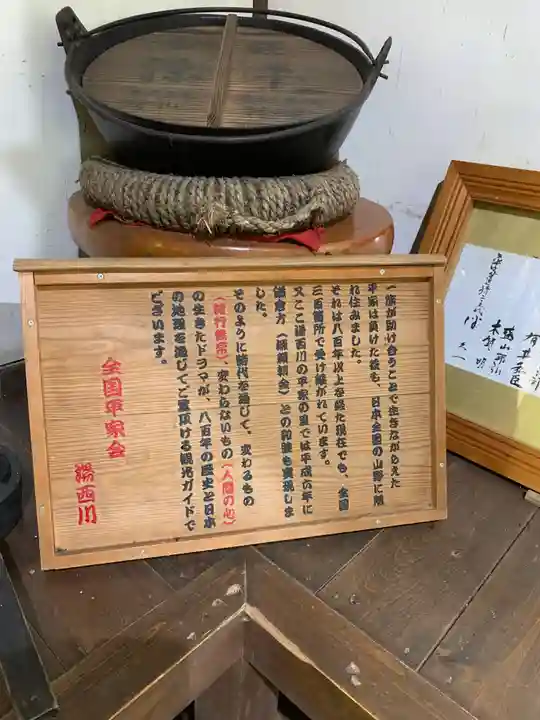 一族が助け合うことで生きながらえた
平家は負けた後も、日本全国の山野に隠
れ住みました。
それは八百年以上を経た現在でも、全国
三百箇所で受け継がれています。
又ここ湯西川の平家の里では平成六年に
鎌倉方（源頼朝会）との和睦も実現しま
した。
そのように時代を通して、変わるもの
（諸行無常）変わらないもの（人間の心）
の生きたドラマが、八百年の歴史と日本
の地理を通してご覧頂ける観光ガイドで
ございます。
全国平家会
湯西川